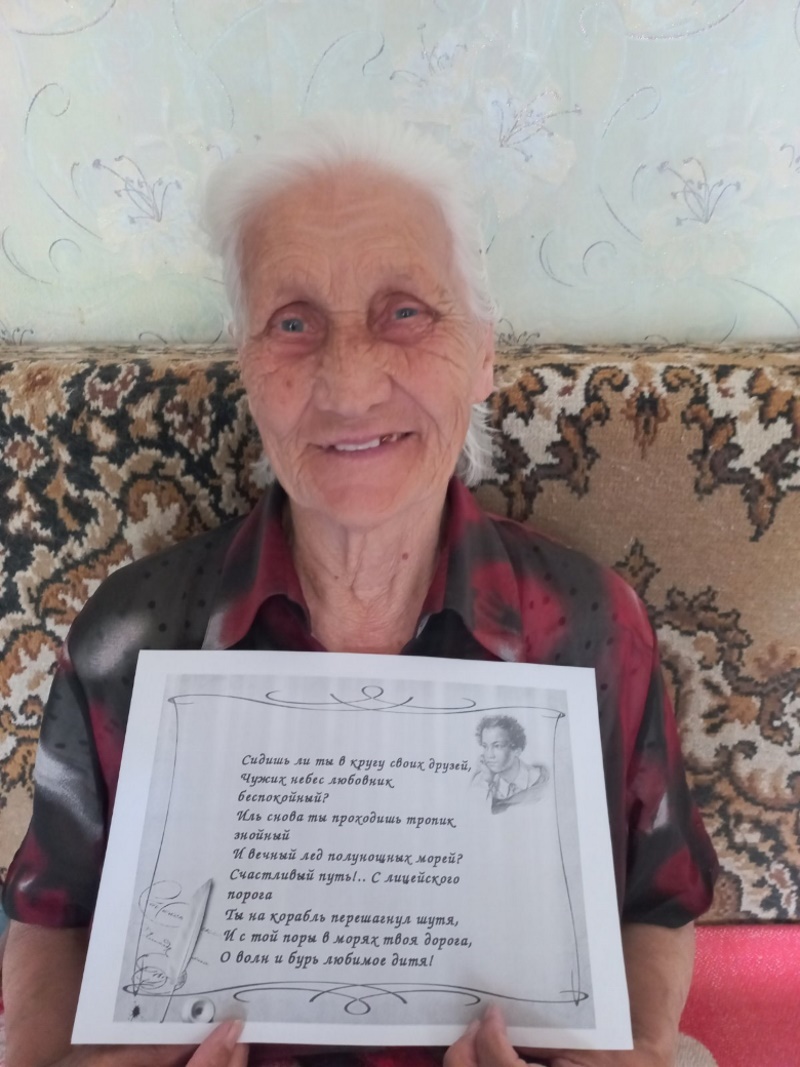 Сидишь ли ты в кругу своих друзей,
Чужих небес любовник
беспокойный?
Иль снова ты проходишь тропик
знойный
И вечный лед полунощных морей?
Счастливый путь!.. С лицейского
порога
Ты на корабль перешагнул шутя,
И с той поры в морях твоя дорога,
О волн и бурь любимое дитя!